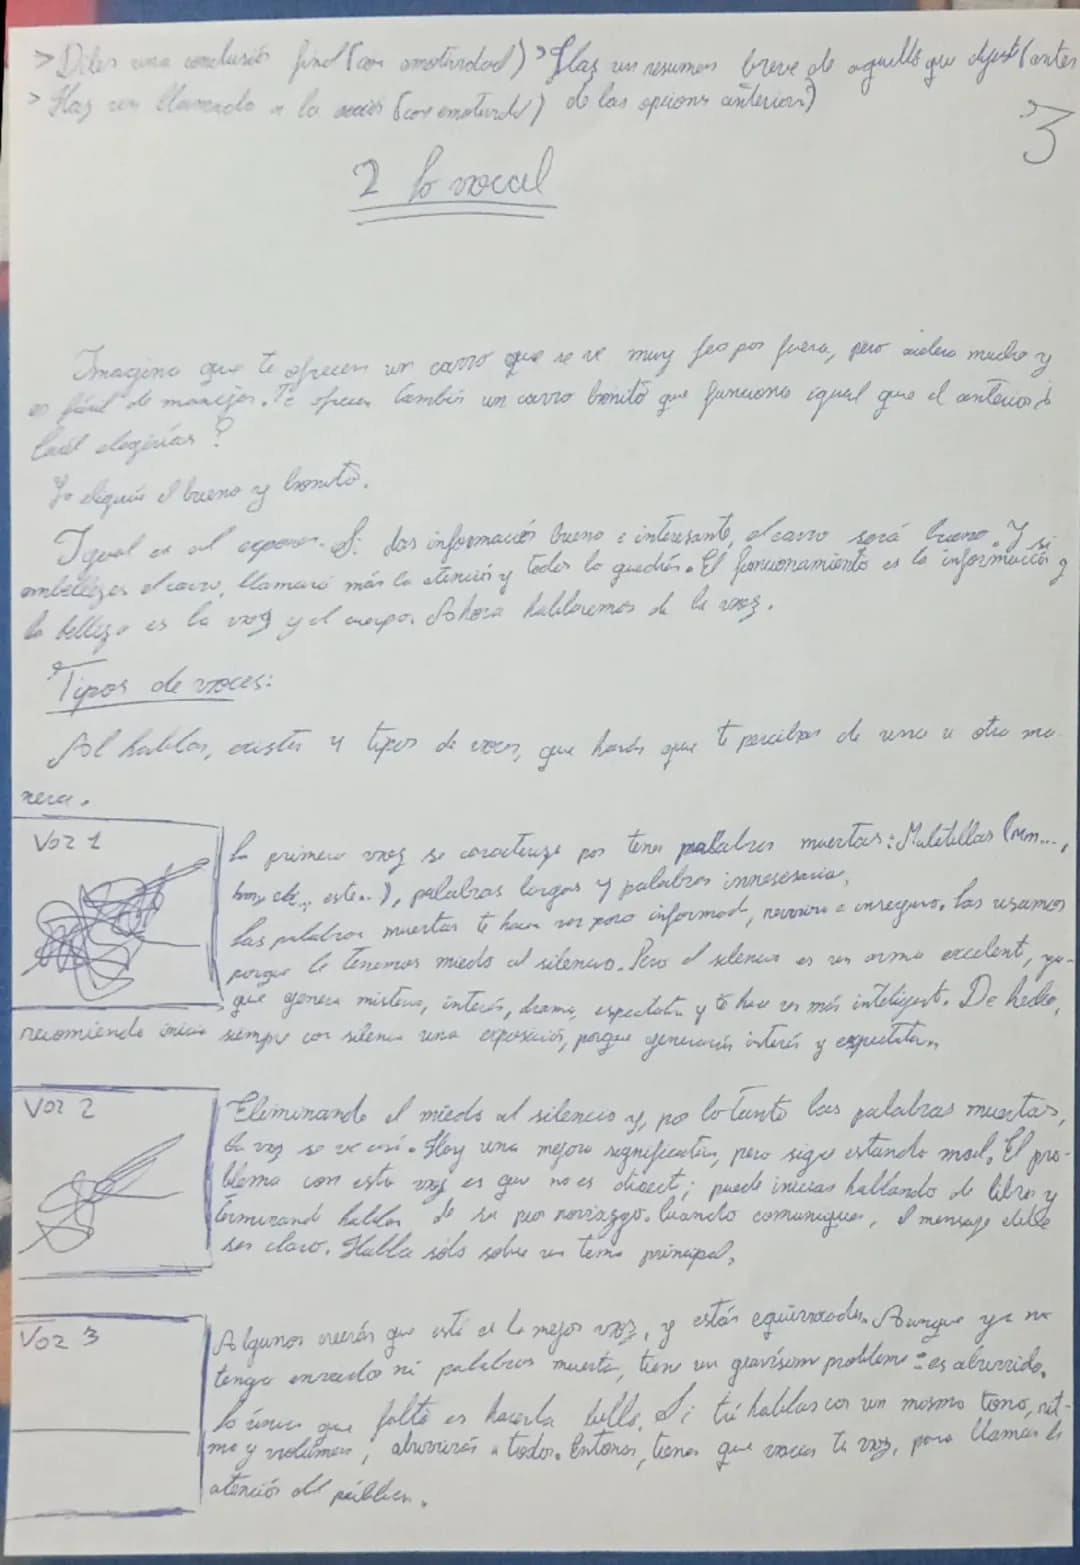 > Diles una conclusión final (con emotividad) > Haz un resumen breve de aquello que dijiste (antes
> Haz un llamado a la acción (con emotividad) de las opciones anteriores)
3
2 Lo vocal
Imagina que te ofrecen un carro que se ve muy feo por fuera, pero acelera mucho y
es fácil de manejar. Te ofrecen también un carro bonito que funciona igual que el anterior ¿
Cuál elegirías?
Yo elegiría el bueno y bonito.
Igual es al exponer. Si das información buena e interesante, el carro será bueno. Y si
embelleces el carro, llamará más la atención y todos lo querrán. El funcionamiento es la información y
la belleza es la voz y el cuerpo. Ahora hablaremos de la voz.
Tipos de voces:
Al hablar, existen 4 tipos de voces, que harán que te perciban de una u otra ma-
nera.
Voz 1
La primera voz se caracteriza por tener palabras muertas: Muletillas (mm...,
eh..., este...), palabras largas y palabras innesesarias.
Las palabras muertas te hacen ver poco informado, nervioso e inseguro. Las usamos
porque le tenemos miedo al silencio. Pero el silencio es un arma excelente, ya-
que genera misterio, interés, drama, expectativa y te hace ver más inteligente. De hecho,
recomiendo iniciar siempre con silencio una exposición, porque generarás interés y expectativa.
Voz 2
Eliminando el miedo al silencio y, por lo tanto las palabras muertas,
la voz se ve así. Hay una mejora significativa, pero sigue estando mal. El pro-
blema con esta voz es que no es directa; puede iniciar hablando de libros y
terminando hablar de su peor noviazgo. Cuando comuniques, el mensaje debe
ser claro. Habla sólo sobre un tema principal.
Voz 3
Algunos creerán que esta es la mejor voz, y están equivocados. Aunque ya no
tenga enredos ni palabras muertas, tiene un gravísimo problema: es aburrida.
Lo único que falta es hacerla bella. Si tú hablas con un mismo tono, rit-
mo y volumen, aburrirás a todos. Entonces, tienes que variar tu voz, para llamar la
atención del público.